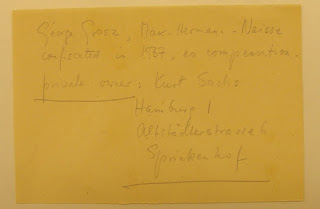 George Grosz, Max-Hermann-Neisse
confiscated in 1937, no compensation.
private owner: Kurt Sachs
Hamburg 1
Altstädterstrasse 6
Sprinkenhof